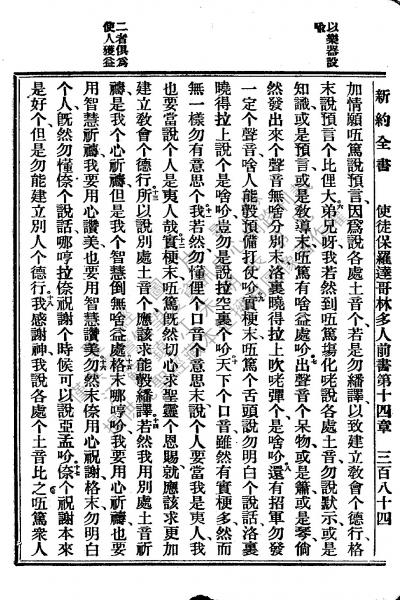 以樂器設
喻
二者俱爲
使人獲益
新約全書　使徒保羅達哥林多人前書第十四章　三百八十四
加情願唔篤說預言因爲說各處土音个若是勿繙譯以致建立教會个德行格
末說預言个比俚大弟兄呀我若然到唔篤塲化咾說各處土音勿說默示或是
知識或是預言或是教導末唔篤有啥益處吤出聲音个呆物或是簫或是琴倘
然發出來个聲音無啥分別末洛裏曉得拉上吹咾彈个是啥吤還有招軍勿發
一定个聲音啥人能彀預備打仗吤實梗末唔篤个舌頭說勿明白个說話洛裏
曉得拉上說个是啥吤豈勿是說拉空裏吤天下个口音雖然有實梗多然而
無一樣勿有意思个我若然勿懂俚个口音个意思末說个人要當我是夷人我
也要當說个人是夷人哉實梗末唔篤旣然切心求聖靈个恩賜就應該求更加
建立教會个德行所以說別處土音个應該求能彀繙譯若然我用別處土音祈
禱是我个心祈禱但是我个智慧倒無啥益處格末哪哼吤我要用心祈禱也要
用智慧祈禱我要用心讚美也要用智慧讚美勿然末倷用心祝謝格末勿明白
个人旣然勿懂倷个說話哪哼拉倷祝謝个時候可以說亞孟吤倷个祝謝本來
是好个但是勿能建立別人个德行我感謝神我說各處个土音比之唔篤衆人